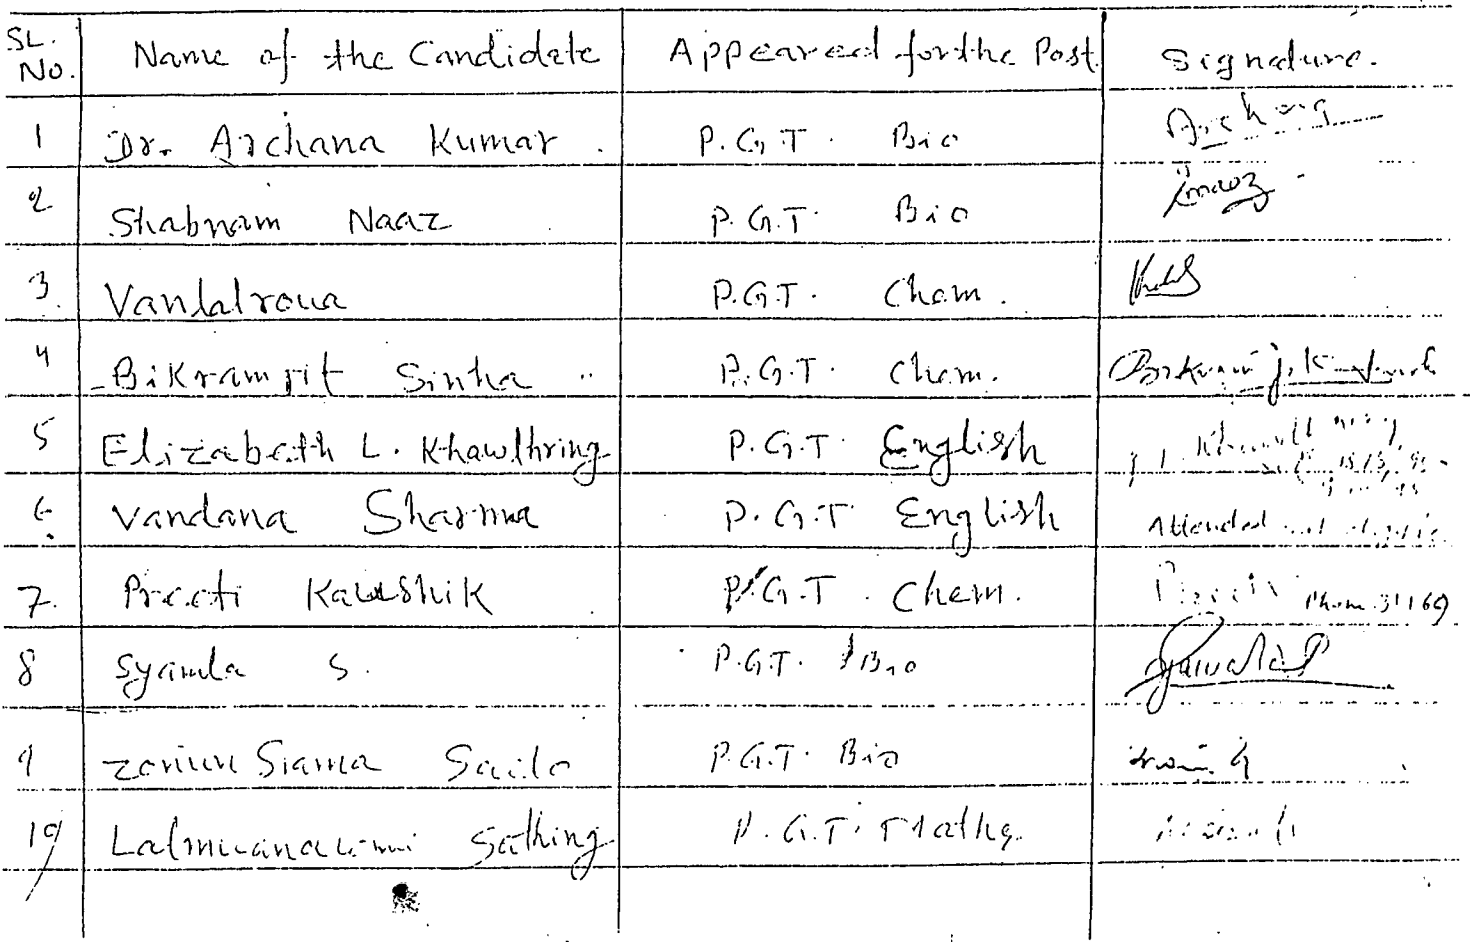 SL. No. Name of the Candidate Appeared for the Post Signature.
1 Dr. Archana Kumar. P.G.T. Bio Archana
2 Shabnam Naaz P.G.T. Bio Snaaz
3. Vanlalroua P.G.T. Chem.
4 Bikramjit Sinha P.G.T. Chem.
5 Elizabeth L. Khawlhring P.G.T. English
6. Vandana Sharma P.G.T English Attended
7. Preeti Kaushik P.G.T. Chem. Preeti Phone 31169
8 Syamla S. P.G.T. Bio
9 Siama Sailo P.G.T. Bio
10 Sathing P.G.T. Maths